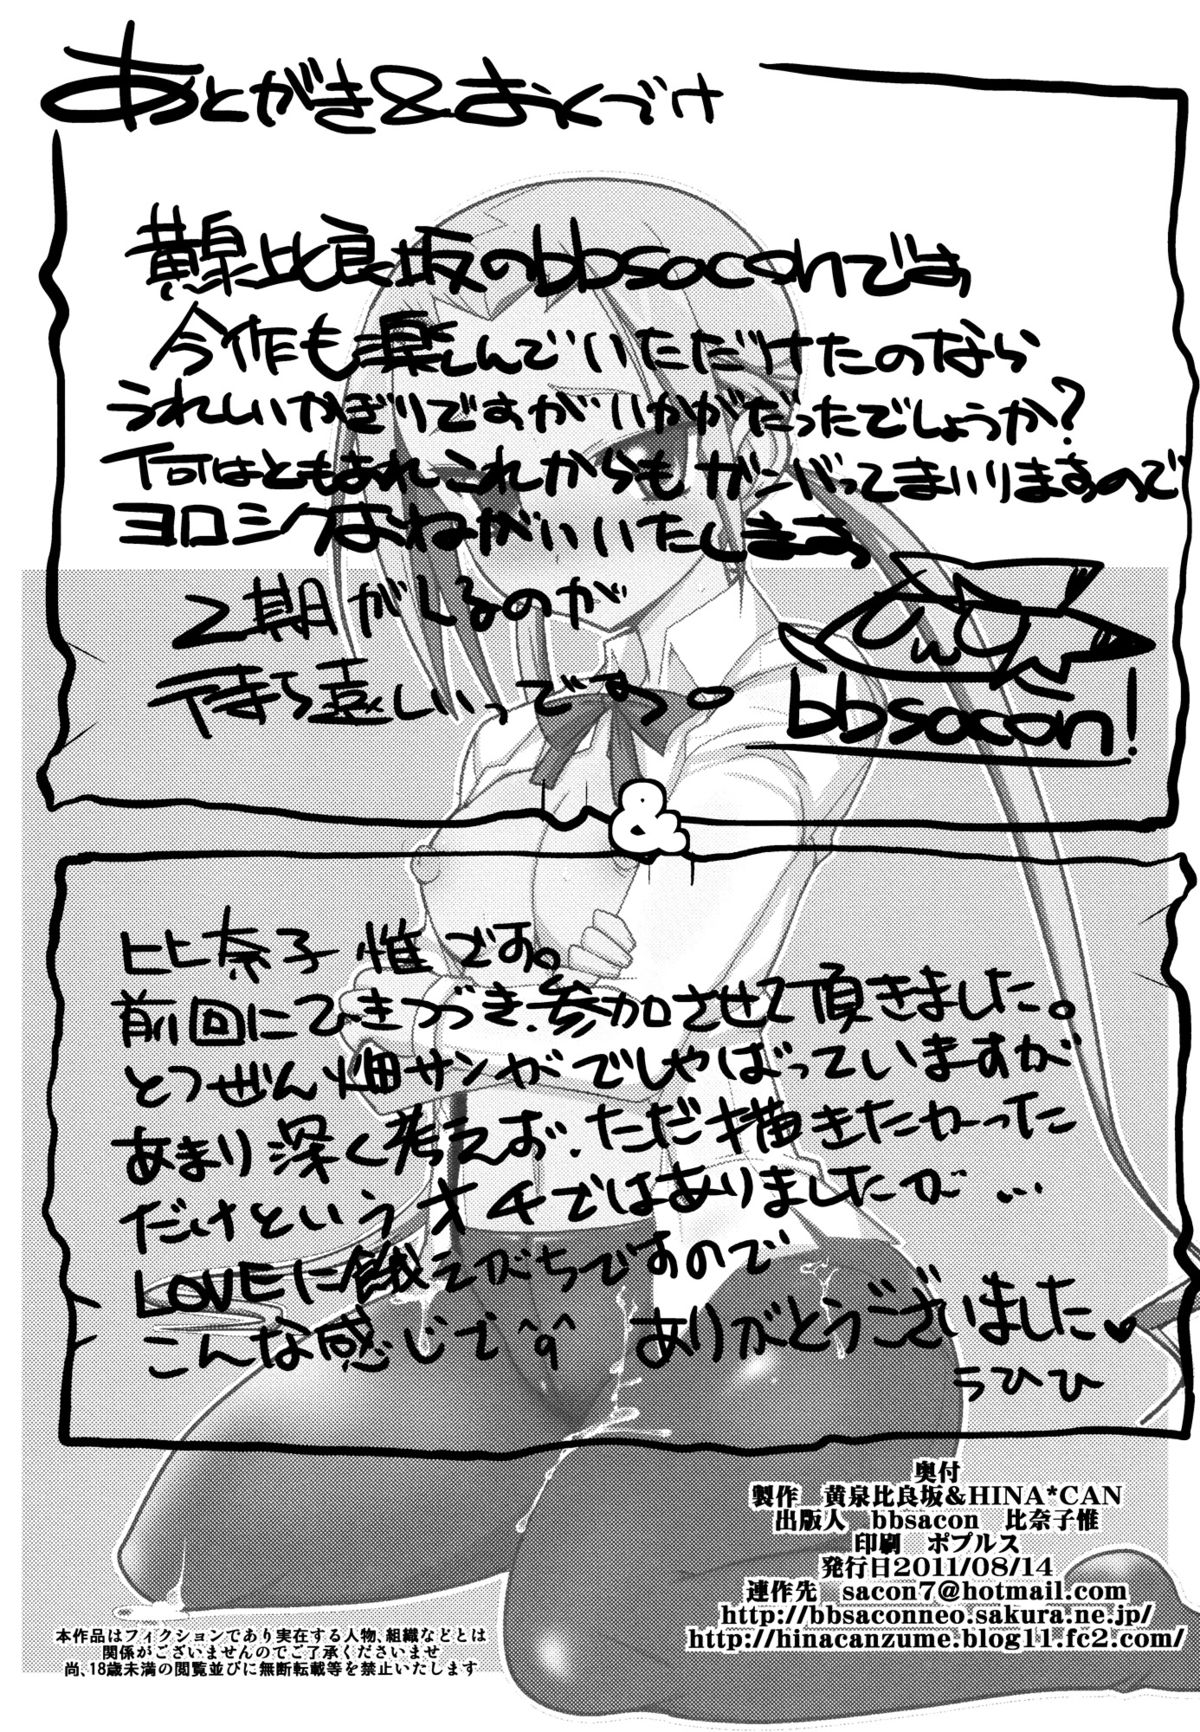 あとがき&おくづけ
黄泉比良坂のbbsaconです
今作も楽しんでいただけたのなら
うれしいかぎりですがいかがだったでしょうか?
何はともあれこれからもガンバってまいりますので
ヨロシクおねがいいたします
2期がくるのが
待ち遠しいっですっ。
bbsacon!
&
比奈子惟です。
前回にひきつづき、参加させて頂きました。
とつぜん畑サンがでしゃばっていますが
あまり深く考えお、ただ描きたかった
だけというオチではありましたが…
LOVEに餓えがちですので
こんな感じで^q^ ありがとうございました♥
うひひ
奥付
製作 黄泉比良坂&HINA*CAN
出版人 bbsacon 比奈子惟
印刷 ポプルス
発行日2011/08/14
連作先 sacon7@hotmail.com
http://bbsaconneo.sakura.ne.jp/
http://hinacanzume.blog11.fc2.com/
本作品はフィクションであり実在する人物、組織などとは
関係がございませんのでご了承くださいませ
尚、18歳未満の閲覧並びに無断転載等を禁止いたします